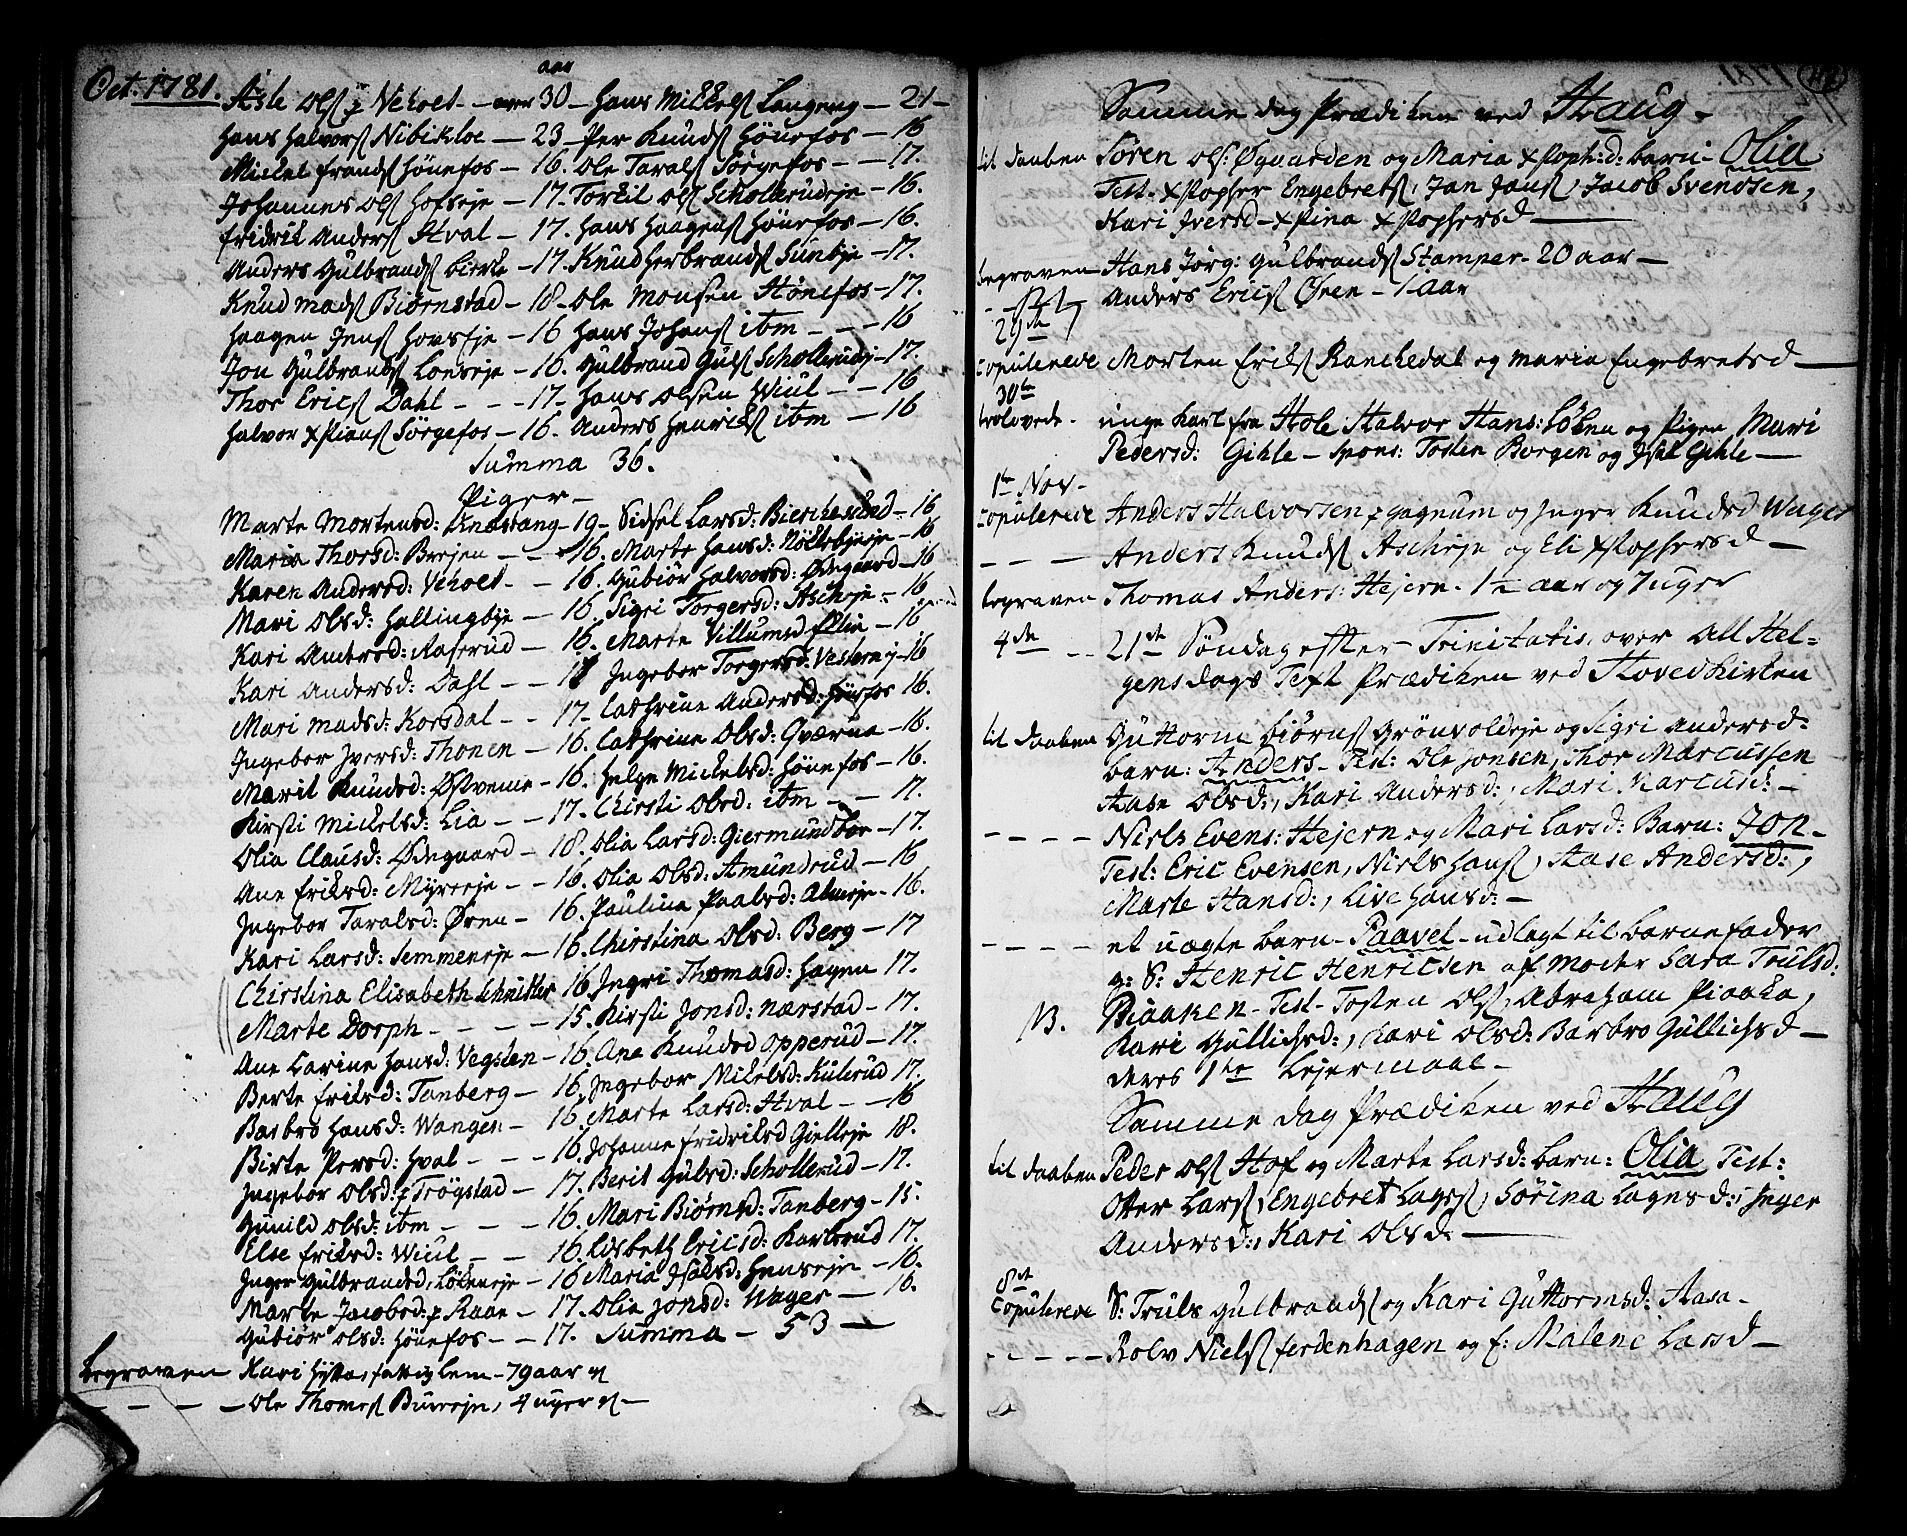 Oct. 1781.
aar
Asle Ols: Vehoel - 30 - Hans Mikkels Langeng - 21 -
Hans Halvors Nibikloe - 23 - Per Knuds Hönefos - 16
Mickel Frands Hönefos - 16. Ole Tarals Sørgefos - 17.
Johannes Ols Hofseje - 17. Torkil Ols Schollerudeje - 16.
Fridrik Anders Hval - 17. Hans Haagens Hönefos - 16.
Anders Gulbrands Bierke - 17. Knud Herbrands - 17.
Knud Mads Biørnstad - 18 - Ole Monsen Hönefos - 17.
Haagen Jens Hovseje - 16 Hans Johans itm - - - 16
Jon Gulbrands - 16. Gulbrand Guls Schollerudej - 17.
Thor Erics Dahl - - - 17 - Hans Olsen Wiul - - 16
Halvor Xstians Sörgefos - 16. Anders Henriks itm - 16
Summa 36.
Piger -
Marte Mortensd: - 19 - Sidsel Larsd: - 16
Maria Thorsd: - - 16. Marte Hansd: - 16
Karen Andersd: Vehoel - - 16. Gubiör Halvorsd: Ødegaard - 16
Mari Olsd: Hallingbye - 16. Sigri Torgersd: Ascheje - 16
Kari Aaserud - 16. Marte Villumsd - 16
Kari Andersd: Dahl - - 18 Ingebor Torgersd: - 16
Mari Madsd: Korsdal - - 17 - Cathrine Andersd: Hönefos 16.
Ingebor Iversd: Thonen - 16. Cathrine Olsd: Gværna - 16.
Marit Knudsd: - 16. Helge Mickelsd: Hönefos - 16.
Kirsti Mickelsd: Lia - - 17. Chirsti Olsd: itm - - 17.
Olia Clausd: Ødegaard - 18. Olia Larsd: Giermundboe - 17.
Ane Eriksd: Myreeje - - 16. Olia Olsd: Amundrud - 16
Ingebor Taralsd: Ören - 16. Paulina Paalsd: Almeje - 16.
Kari Larsd: Semmeneje - 16. Chirstina Olsd: Berg - 17
Chirstina Elisabeth Schnitler 16 Ingri Thomasd: Hagen 17.
Marte Dorph - - - - 15. Kirsti Jonsd: Nærstad - 17.
Ane Carine Hansd: Vegsteen - 16. Ane Knudsd Opperud - 17.
Berte Eriksd: Tanberg - 16. Ingebor Mikelsd: 17.
Barbro Hansd: Wanger - 16. Marte Larsd: Hval - - 16
Birte Persd: Hval - - - 16. Johanne Fridriksd Gielleje 18.
Ingebor Olsd: Trögstad - 17. Berit Gulbsd: Schollerud - 17.
Gunild Olsd: itm - - - 16. Mari Biørnsd: Tanberg - 15.
Else Eriksd: Wiul - - 16. Lisbeth Ericsd: Karlsrud 17.
Inger Gulbrandsd: - 16 Maria Isaksd: Henseje - 16.
Marte Jacobsd: Raae - 17. Olia Jonsd: Wager - 16.
Gubiör Olsd: Hönefos - - 17. Summa - 53 -
Begraven Kari Hytta, fattig lem - 79 aar
- - - - Ole Thomes Bureeje, 4 uger
Samme dag Prædiken ved Haug -
til daaben Sören Ols: Øgaarden og Maria Xstophd: barn - Olia
Test - Xstopher Engebrets, Jan Jans, Jacob Svendsen,
Kari Iversd - Xstina Xstophersd -
begraven Hans Jörg: Gulbrands Stamper - 20 aar -
Anders Erics Øren - 1 aar
29de
Copulerede Morten Eriks Ranchedal og Maria Engebretsd -
30te
trolovede - unge karl fra Hole Halvor Hans: Løken og Pigen Mari
Pedersd: Gihle - Spons: Tosten Borgen og Gihle -
1te Nov -
Copulerede Anders Halvorsen og Inger Knudsd Wager
- - - Anders Knuds Ascheje og Eli Xstophersd -
begraven Thomas Anders: Hejern - 1½ aar og 7 uger
4de - - 21de Söndag efter Trinitatis, over All Hel-
gens dags Text Prædiken ved Hovedkirken
til daaben Guttorm Biörns Grönvoldeje og Sigri Andersd:
barn: Anders - Test: Ole Jonsen, Thor Marcussen
Aase Olsd:, Kari Andersd:, Mari Marcusd: -
- - - - Niels Evens: Hejern og Mari Larsd: Barn: Jon -
Test: Eric Evensen, Niels Hans, Aase Andersd:,
Marte Hansd:, Live Hansd: -
- - - - et uægte barn - Paavel - udlagt til barnefader
g: S: Henric Henricsen af Moder Sara Trulsd:
NB. Piaaken - Test - Tosten Ols, Abraham Piaaka,
Kari Gullichsd:, Kari Olsd: Barbro Gullichsd -
deres 1te Lejermaal -
Samme dag Prædiken ved Haug
til daaben Peder Ols Hof og Marte Larsd: barn: Olia Test:
Otter Lars, Engebret Lages, Sörina Lagesd:, Inger
Andersd:, Kari Olsd: -
8de
Copulerede S: Truls Gulbrands og Kari Guttormsd: Aasa -
- - - - Rolv Niels Ferdenhagen og f: Malene Larsd -